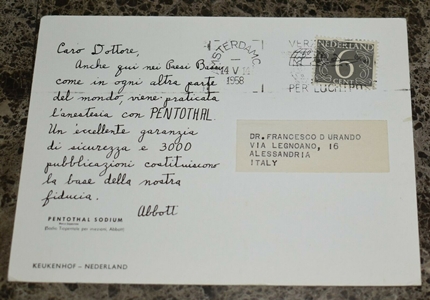 Caro Dottore,
Anche qui nei Paesi Bassi
come in ogni altra parte
del mondo, viene praticata
l'anestesia con PENTOTHAL.
Un excellente garanzia
di sicurezza e 3000
pubblicazioni costituiscono
la base della nostra
fiducia.
Abbott
PENTOTHAL SODIUM
KEUKENHOF – NEDERLAND
AMSTERDAM C.
14 V
1958
PER LUCHTPOST
NEDERLAND
6
CENT
DR. FRANCESCO D URANDO
VIA LEGNOANO, 16
ALESSANDRIA
ITALY